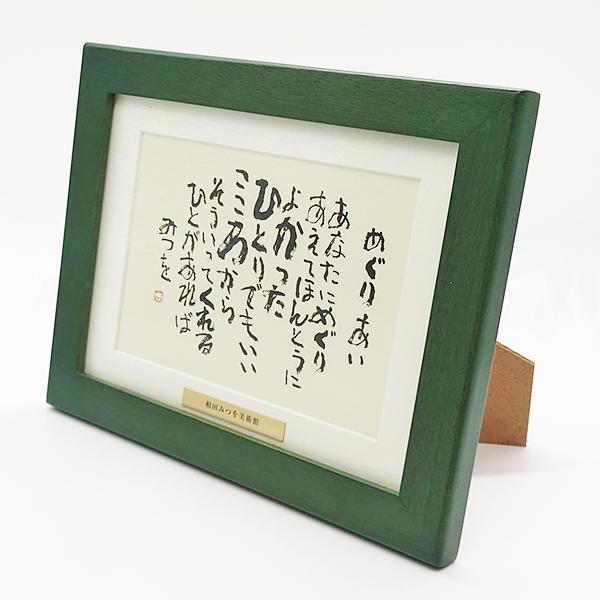 めぐりあい
あなたにめぐり
あえてほんとうに
よかった
ひとりでもいい
こころから
そういってくれる
ひとがあれば
みつを
相田みつを美術館